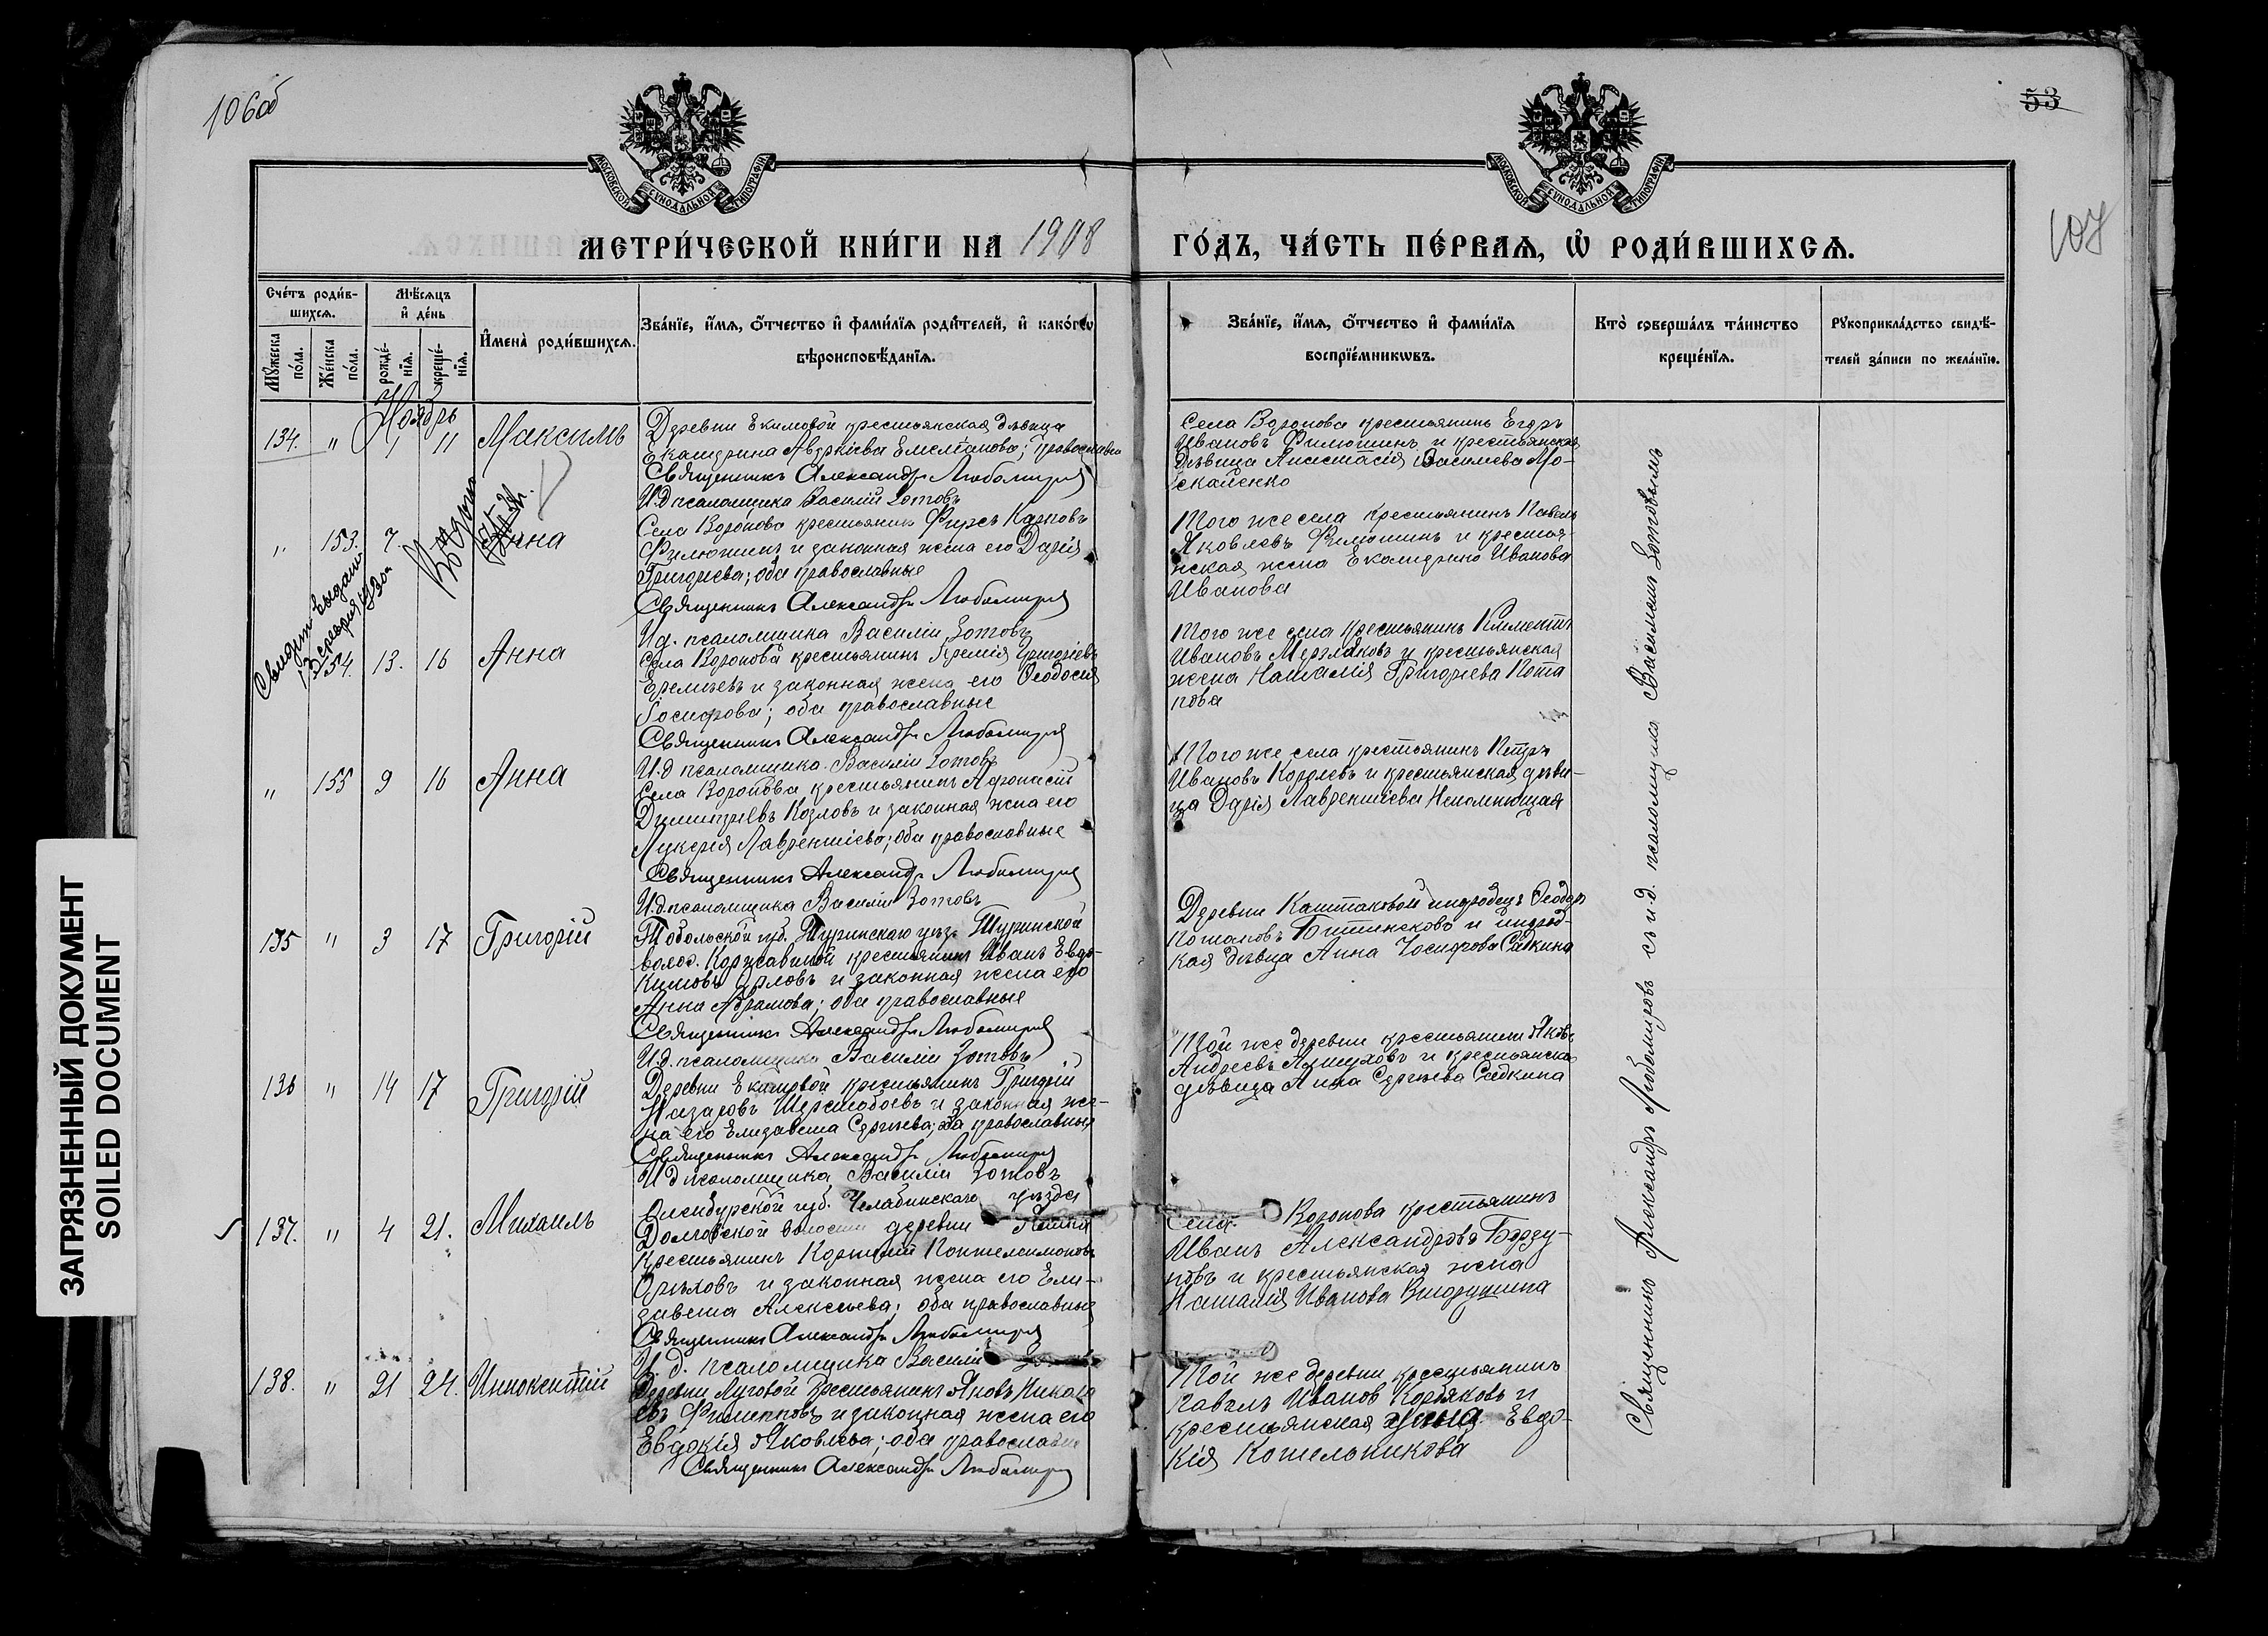 106об
53
107
МОСКОВСКОЙ СУНОДАЛЬНОЙ ТИПОГРАФІИ
МОСКОВСКОЙ СУНОДАЛЬНОЙ ТИПОГРАФІИ
МЕТРИ́ЧЕСКОЙ КНИ́ГИ НА 1908
ГО́ДЪ, ЧА́СТЬ ПЕ́РВАѦ, Ѡ҆ РОДИ́ВШИХСѦ.
Сче́тъ роди́в-
шихсѧ.
Мꙋ́жеска
по́ла.
Же́нска
по́ла.
Мѣ́сѧцъ
и҆ де́нь
рожде́-
нїѧ.
креще́-
нїѧ.
И҆мена̀ роди́вшихсѧ.
Зва́нїе, и҆́мѧ, ѻ҆́тчество и҆ фами́лїѧ роди́телей, и҆ како́гѡ
вѣроисповѣ́данїѧ.
Зва́нїе, и҆́мѧ, ѻ҆́тчество и҆ фами́лїѧ
воспрїе́мникѡвъ.
Кто̀ соверша́лъ та́инство
креще́нїѧ.
Рꙋкоприкла́дство свидѣ́-
телей за́писи по жела́нїю.
Ноябрь
134. " 1 11 Максимъ
Деревни Екимовой крестьянская дѣвица
Екатерина Аверкіева Емеліанова; православна
Священникъ Александръ Любомиров
И.д псаломщика Василій Зотовъ
Села Воронова крестьянинъ Егоръ
Ивановъ Филюшинъ и крестьянская
дѣвица Анастасія Васильева Мо-
скаленко
" 153. 7 Анна
Свидѣт. выдано
Села Воронова крестьянинъ Фирсъ Карповъ
Филюшинъ и законная жена его Дарія
Григориева; оба православные
Священникъ Александръ Любомиров
И.д. псаломщика Василій Зотовъ
Того же села крестьянинъ Павелъ
Яковлевъ Филюшинъ и крестья-
нская жена Екатерина Иванова
Иванова
154. 13. 16 Анна
Села Воронова крестьянинъ Еремія Григоріевъ
Еремѣевъ и законная жена его Ѳеодосія
Іосифова; оба православные
Священникъ Александръ Любомиров
И.д псаломщика Василій Зотовъ
Того же села крестьянинъ Климентъ
Ивановъ Мерзляковъ и крестьянская
жена Наталія Григорьева Пота
пова
" 155 9 16 Анна
Села Воронова крестьянинъ Афонасій
Димитріевъ Козловъ и законная жена его
Лукерія Лаврентіева; оба православные
Священникъ Александръ Любомиров
И.д псаломщика Василій Зотовъ
Того же села крестьянинъ Петръ
Ивановъ Королевъ и крестьянская дѣви-
ца Дарія Лаврентіева Непомнющая
135 " 3 17 Григорій
Тобольской губ. Туринскаго уѣз. Туринской
волос. Коржавиной крестьянинъ Иванъ Евдо-
кимовъ Орловъ и законная жена его
Анна Абрамова; оба православные
Священникъ Александръ Любомиров
И.д. псаломщика Василій Зотовъ
Деревни Каштаковой инородецъ Ѳеодоръ
инород-
кая дѣвица Анна Іосифова Сѣдкина
136 " 14 17 Григорій
Деревни Екимовой крестьянинъ Григорій
Назаровъ Шерстобоевъ и законная же-
на его Елизавета Сергѣева; оба православные
Священникъ Александръ Любомиров
И д псаломщика Василій Зотовъ
Той же деревни крестьянинъ Яковъ
Андреевъ и крестьянская
дѣвица Анна Сергѣева Сѣдкина
137. " 4 21. Михаилъ
Оренбургской губ. Челябинскаго уѣзда
Долговской волости деревни
крестьянинъ Корнилій Пантелеимоновъ
Орѣховъ и законная жена его Ели-
завета Алексѣева; оба православные
Священникъ Александръ Любомиров
И. д. псаломщика Василій
Села Воронова крестьянинъ
Иванъ Александровъ Борзу-
новъ и крестьянская жена
Наталія Иванова
138. " 21 24. Иннокентій
Деревни Луговой крестьянинъ Яковъ Никола
евъ и законная жена его
Евдокія Яковлева; оба православные
Священникъ Александръ Любомиров
Той же деревни крестьянинъ
Павелъ Иванов и
крестьянская Евдо-
кія Котельникова
Священникъ Александръ Любомировъ съ и.д. псаломщика Василіемъ Зотовымъ
ЗАГРЯЗНЕННЫЙ ДОКУМЕНТ
SOILED DOCUMENT